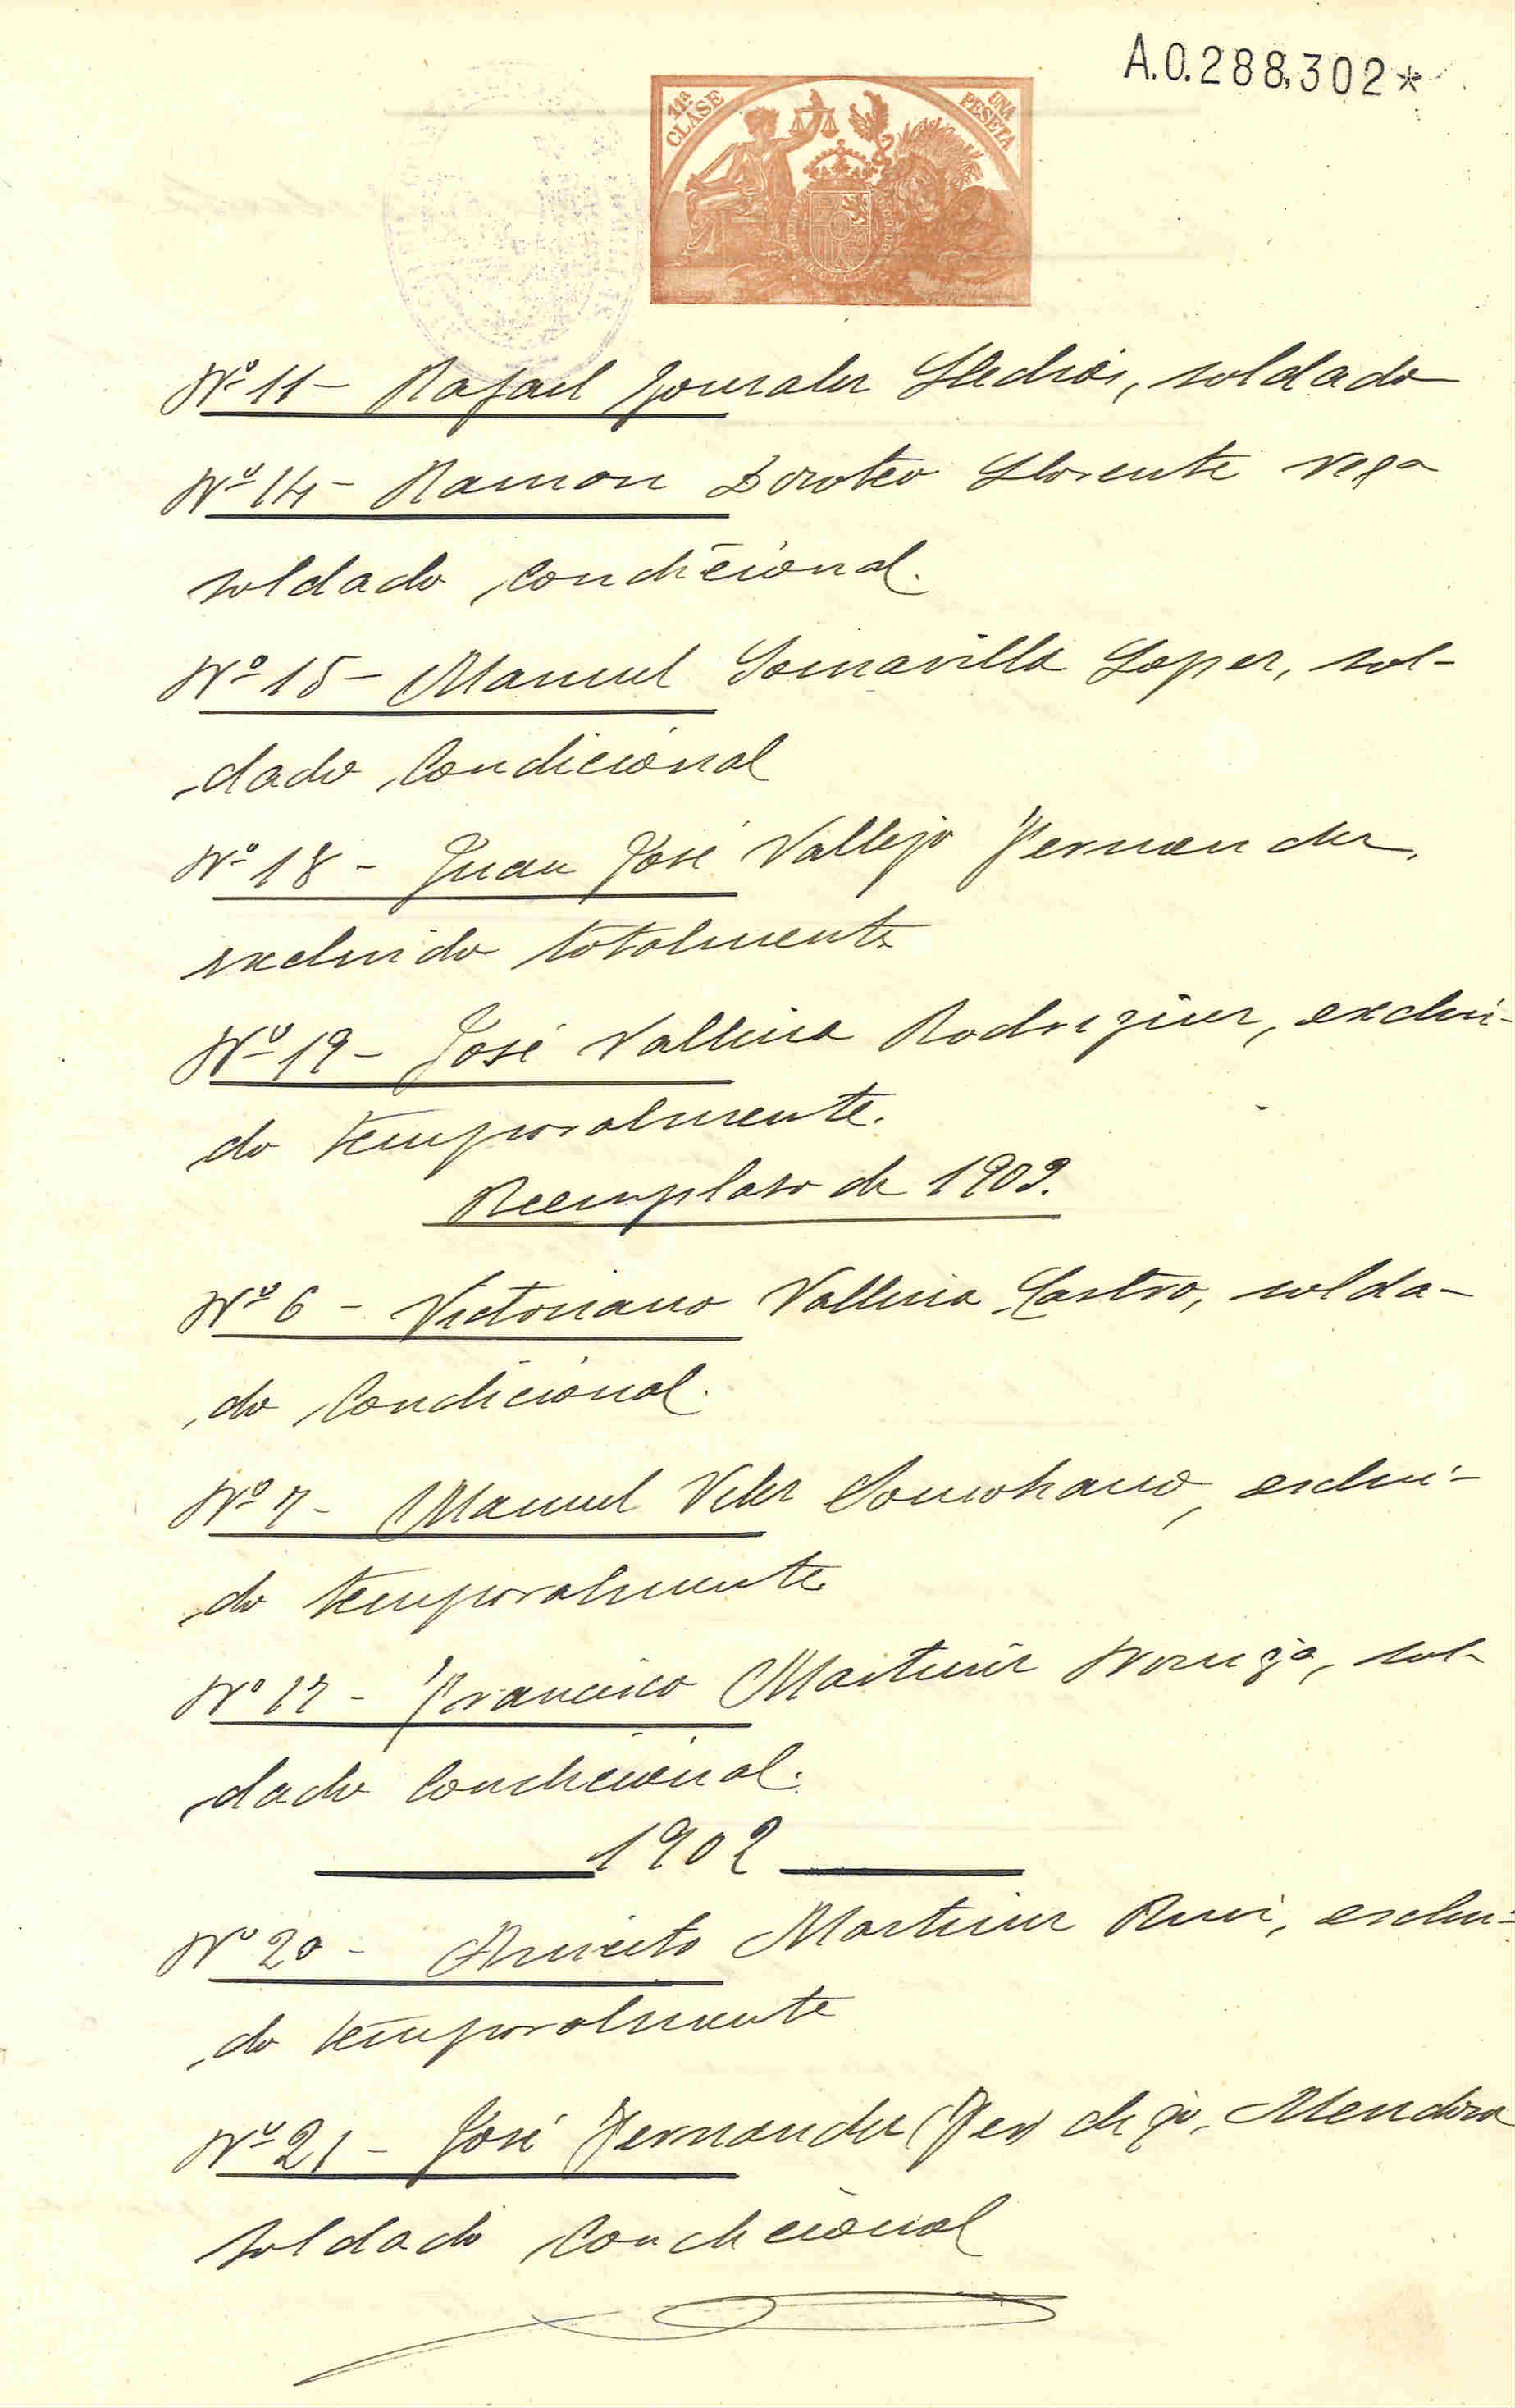 A.0.288,302*
11ª CLASE
UNA PESETA
Nº 11 - Rafael Gonzalez, soldado
Nº 14 - Ramon Doroteo Llorente Vega
soldado condicional.
Nº 15 - Manuel Somavilla Lopez, sol-
dado Condicional
Nº 18 - Juan José Vallejo Fernandez,
excluido totalmente
Nº 19 - José Vallina Rodriguez, exclui-
do temporalmente.
Reemplazo de 1903.
Nº 6 - Victoriano Vallina Castro, solda-
do Condicional.
Nº 7 - Manuel Velez Somohano, exclui-
do temporalmente
Nº 17 - Francisco Martinez Noriega, sol-
dado Condicional.
1902
Nº 20 - Aniceto Martinez Ruiz, exclui-
do temporalmente
Nº 21 - José Fernandez Mendoza
soldado Condicional